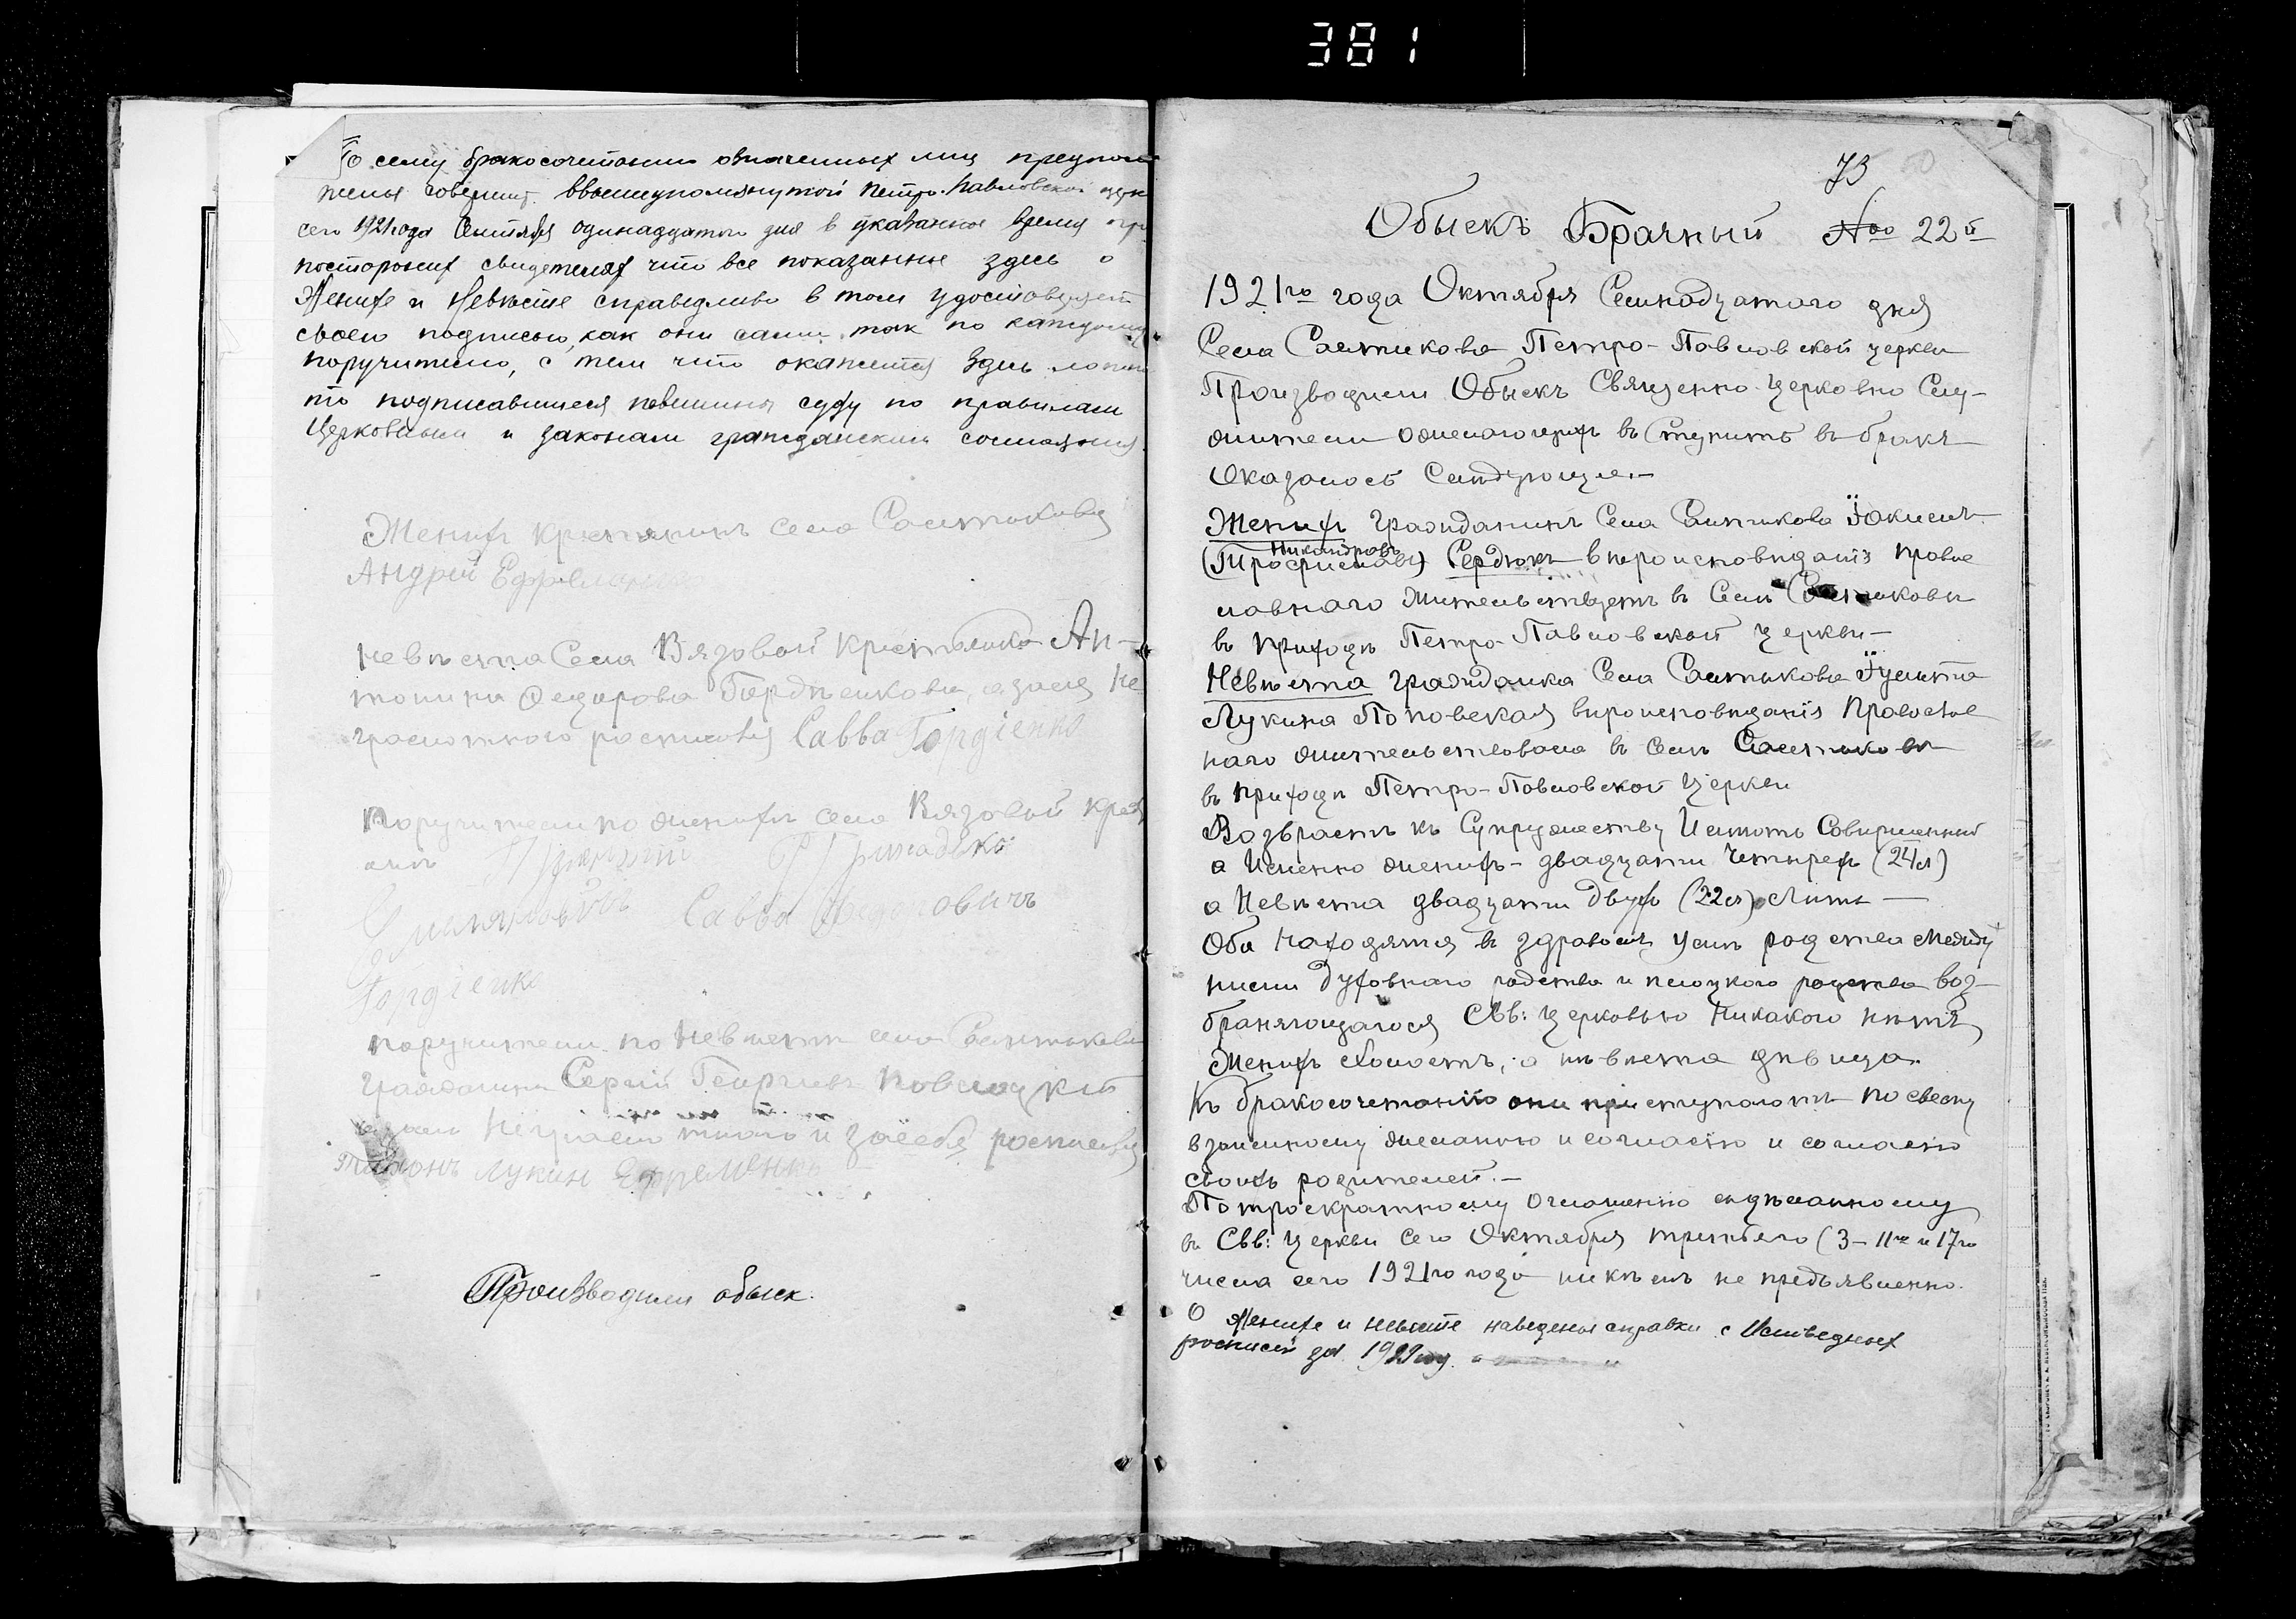 381
По сему бракосочетанию означенных лиц предполо
жено совершит. ввышеупомянутой Петро-Павловской церк
сего 1921 года Сентября одинадцатого дня в указанное время при
посторонних свидетелях что все показанное здесь о
Женихе и Невесте справедливо в том удостоверяют
своею подписью, как они сами так по каждому
поручителю, с тем что окажется здесь ложно
то подписавшиеся повинны суду по правилам
Церковным и законам гражданским
Женихъ крестянинъ села Салтыкова
Андрей Ефременко
Невѣста Села Вязовой крестьянка Ан-
тонина Федорова Гордѣенкова, а за нея не
грамотного росписовся Савва Гордіенко
Поручители по женихѣ села Вязовой крес
Савва
Гордіенко
поручители по Невѣсте села Салтыкова
граждани Сергій Георгіевъ
неграмотного и засебя росписовся
Тихонъ Лукин Ефременко
Производили обыск.
73
Обыскъ Брачный №о 22й
1921го года Октября Семнадцатого дня
Села Салтыкова Петро-Павловской церкви
Производили Обыскъ Священно-Церковно Слу-
жители ожелающихъ въ Ступить въ бракъ
Оказалось Слидующие.-
Женихъ гражданинъ Села Салтыкова Іокимъ
Никандровъ
(Трофимовъ) Сердюкъ вироисповиданіз право
мавнаго жительствуетъ въ Селѣ Салтыкови
въ приходѣ Петро-Павловской Церкви-
Невѣста гражданка Села Салтыкова Іулита
Лукина Поповская вироисповиданія Православ
наго жительствовала въ Селѣ Салтыкове
въ приходѣ Петро-Павловской Церкви
Возврастъ къ Супружеству Имѣютъ Совиршенный
а Именно женихъ - двадцати Четырехъ (24л)
а Невѣста двадцати двухъ (22л) Лѣтъ —
Оба находятся въ здравомъ умѣ родства между
ними духовнаго родства и плоцкого родства воз-
браняющагося Свв: Церковью Никакого нѣтъ,
Женихъ Холостъ, а нѣвѣста дѣвица.
Къ бракосочетанію они приступаютъ по своему
взаимному желанию и согласію и согласию
своихъ родителей.-
По троекратному Оглошению сидѣланному
въ Свв: Церкви сего Октября третьяго (3- 11го и 17го
числа сего 1921го года никѣмъ не предъявленно.
О Женихе и невесте наведены справки с Исповедных
росписей за